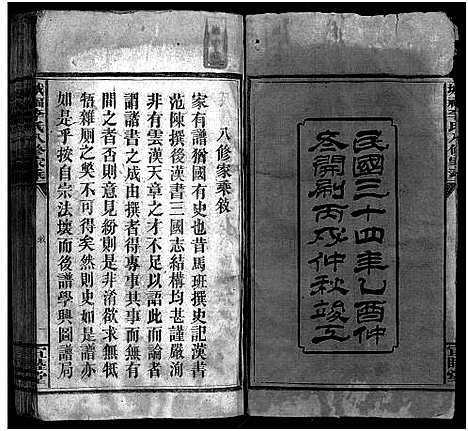 民國三十四年乙酉仲
冬開刷丙戌仲秋竣工
八修家乘敘
家有譜猶國有史也昔馬班撰史記漢書
范陳撰後漢書三國志結構均甚謹嚴洵
非有雲漢天章之才不足以語此而論者
謂諸書之成由撰者得專其事而無有
間之者否則意見紛則是非淆欲求無牴
牾雜厕之獘不可得矣然則史如是譜亦
如是乎按自宗法壞而後譜學興圖譜局